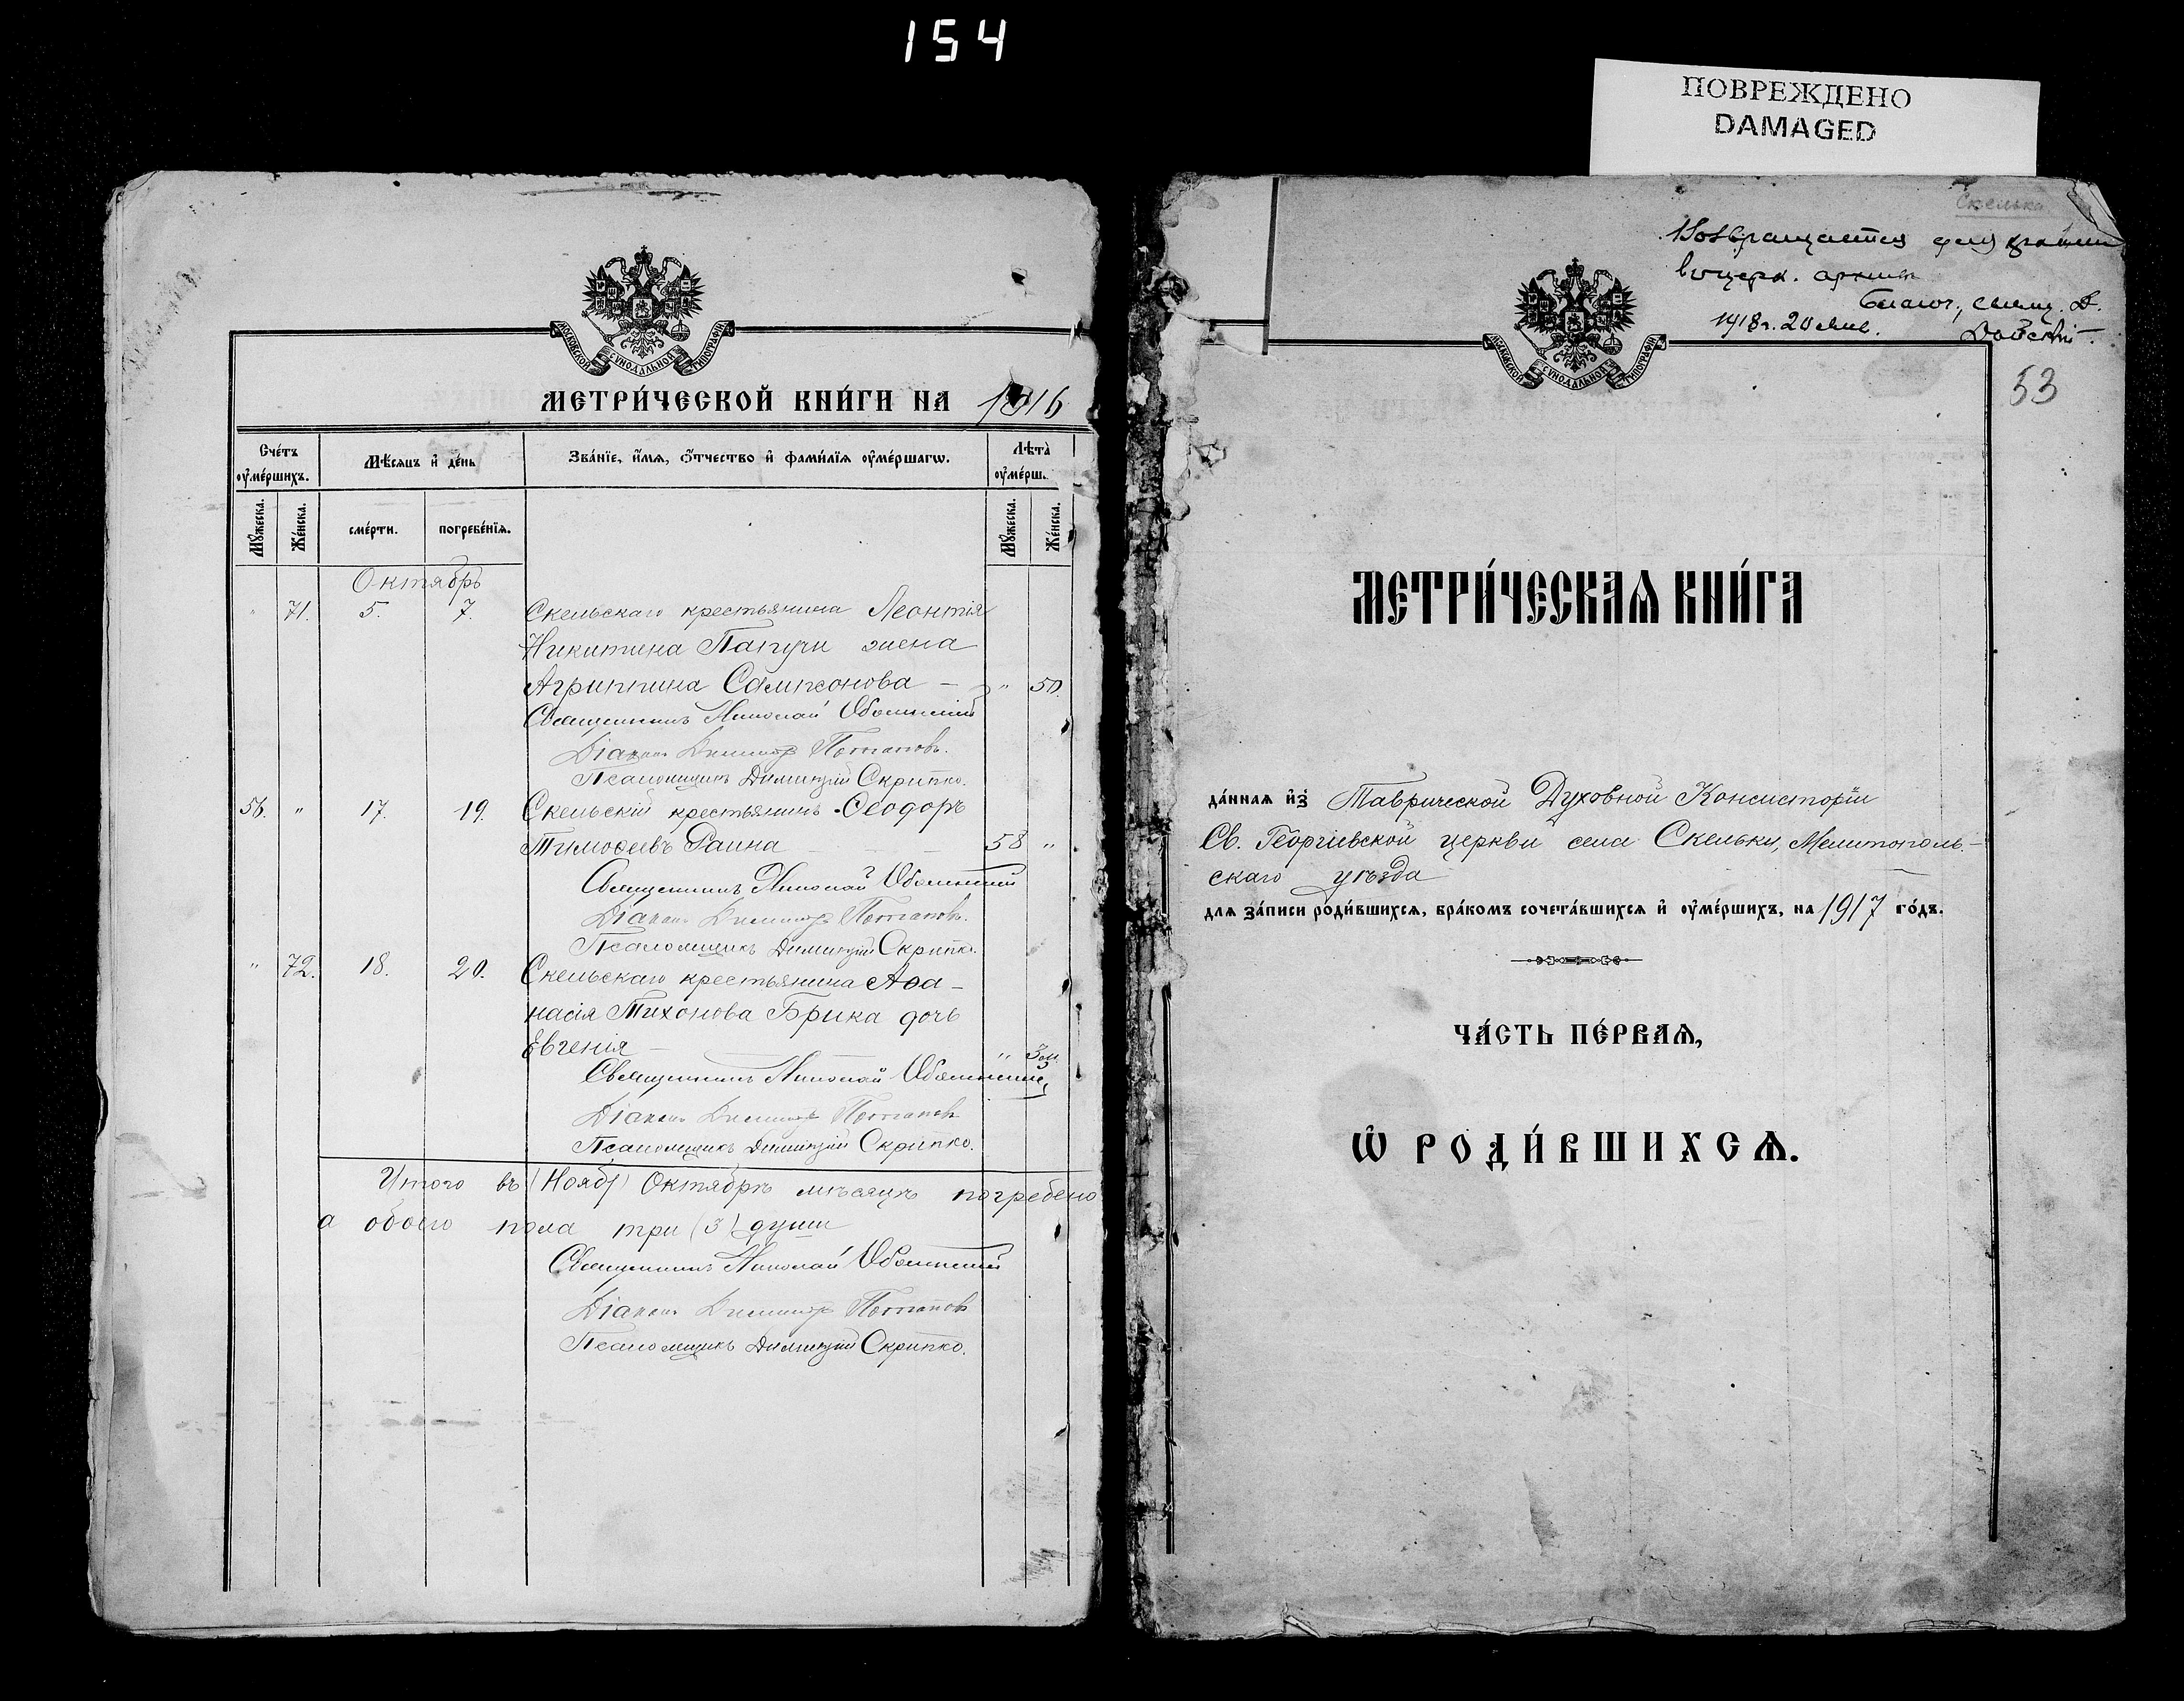 154
ПОВРЕЖДЕНО
DAMAGED
МОСКОВСКОЙ СѴНОДАЛЬНОЙ ТИПОГРАФІИ
МЕТРИ́ЧЕСКОЙ КНИ́ГИ НА 1916
Сче́тъ ᲂу҆ме́ршихъ.
Мѣ́сяцъ и҆ де́нь
Зва́нїе, и҆́мѧ, ѻ҆́тчество и҆ фами́лїѧ ᲂу҆ме́ршагѡ.
Лѣта̀ ᲂу҆ме́рш.
Мꙋ́жеска.
Же́нска.
сме́рти.
погребе́нїѧ.
Мꙋ́жеска.
Же́нска.
Октябрь
" 71. 5. 7. Скельскаго крестьянина Леонтія
Никитина Папучи жена
Агриппина Сампсонова — " 50.
Священникъ Николай Оболенскій
Діаконъ Димитр Потаповъ.
Псаломщикъ Димитрій Скрипко.
56. " 17. 19. Скельскій крестьянинъ Ѳеодоръ
Тимоѳеевъ Раина 58 "
Священникъ Николай Оболенскій
Діаконъ Димитр Потаповъ.
Псаломщикъ Димитрій Скрипко.
" 72. 18. 20. Скельскаго крестьянина Аѳа-
насія Тихонова Брика дочь
Евгенія — " 3 м.
Священникъ Николай Оболенскій
Діаконъ Димитр Потаповъ
Псаломщикъ Димитрій Скрипко.
Итого въ (Нояб) Октябрѣ мѣсяцѣ погребено
а обоего пола три (3) души
Священникъ Николай Оболенскій
Діаконъ Димитр Потаповъ
Псаломщикъ Димитрій Скрипко.
Скелька
Возвращается для храненія
въ церк. архивъ
Благоч., свящ. 
1918 г. 20
53
МОСКОВСКОЙ СѴНОДАЛЬНОЙ ТИПОГРАФІИ
МЕТРИ́ЧЕСКАѦ КНИ́ГА
да́ннаѧ и҆з̾ Таврической Духовной Консисторіи
Св. Георгіевской церкви села Скельки, Мелитополь-
скаго уѣзда
для за́писи роди́вшихсѧ, бра́комъ сочета́вшихсѧ и҆ ᲂу҆ме́ршихъ, на 1917 го́дъ.
ЧА́СТЬ ПЕ́РВАѦ,
Ѡ҆ РОДИ́ВШИХСѦ.